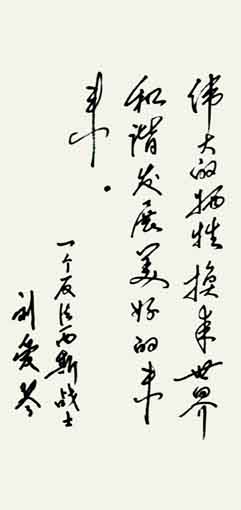 伟大的牺牲换来世界
和谐发展美好的未
来。
一个反法西斯战士
刘爱琴